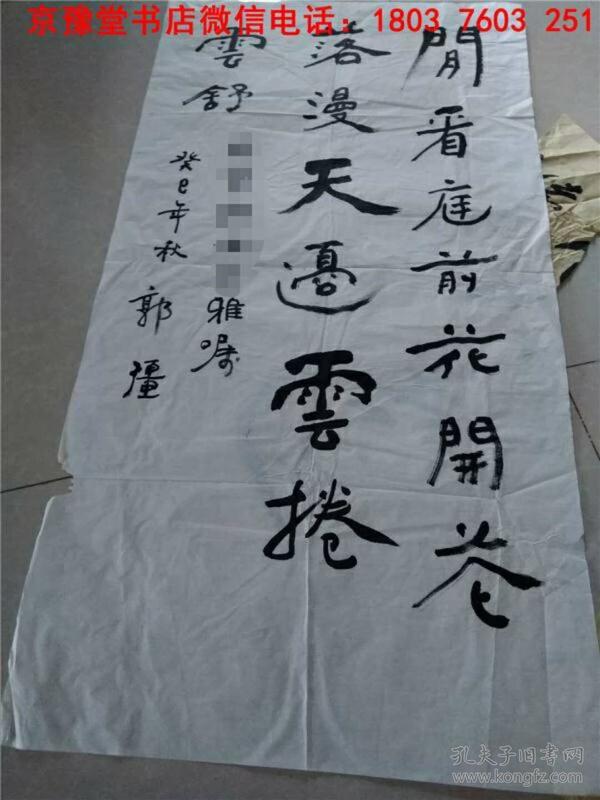 京豫堂书店微信电话：1803 7603 251
閒看庭前花開花
落漫天邊雲捲
雲舒
雅嘱
癸巳年秋 郭疆
孔夫子旧书网
www.kongfz.com